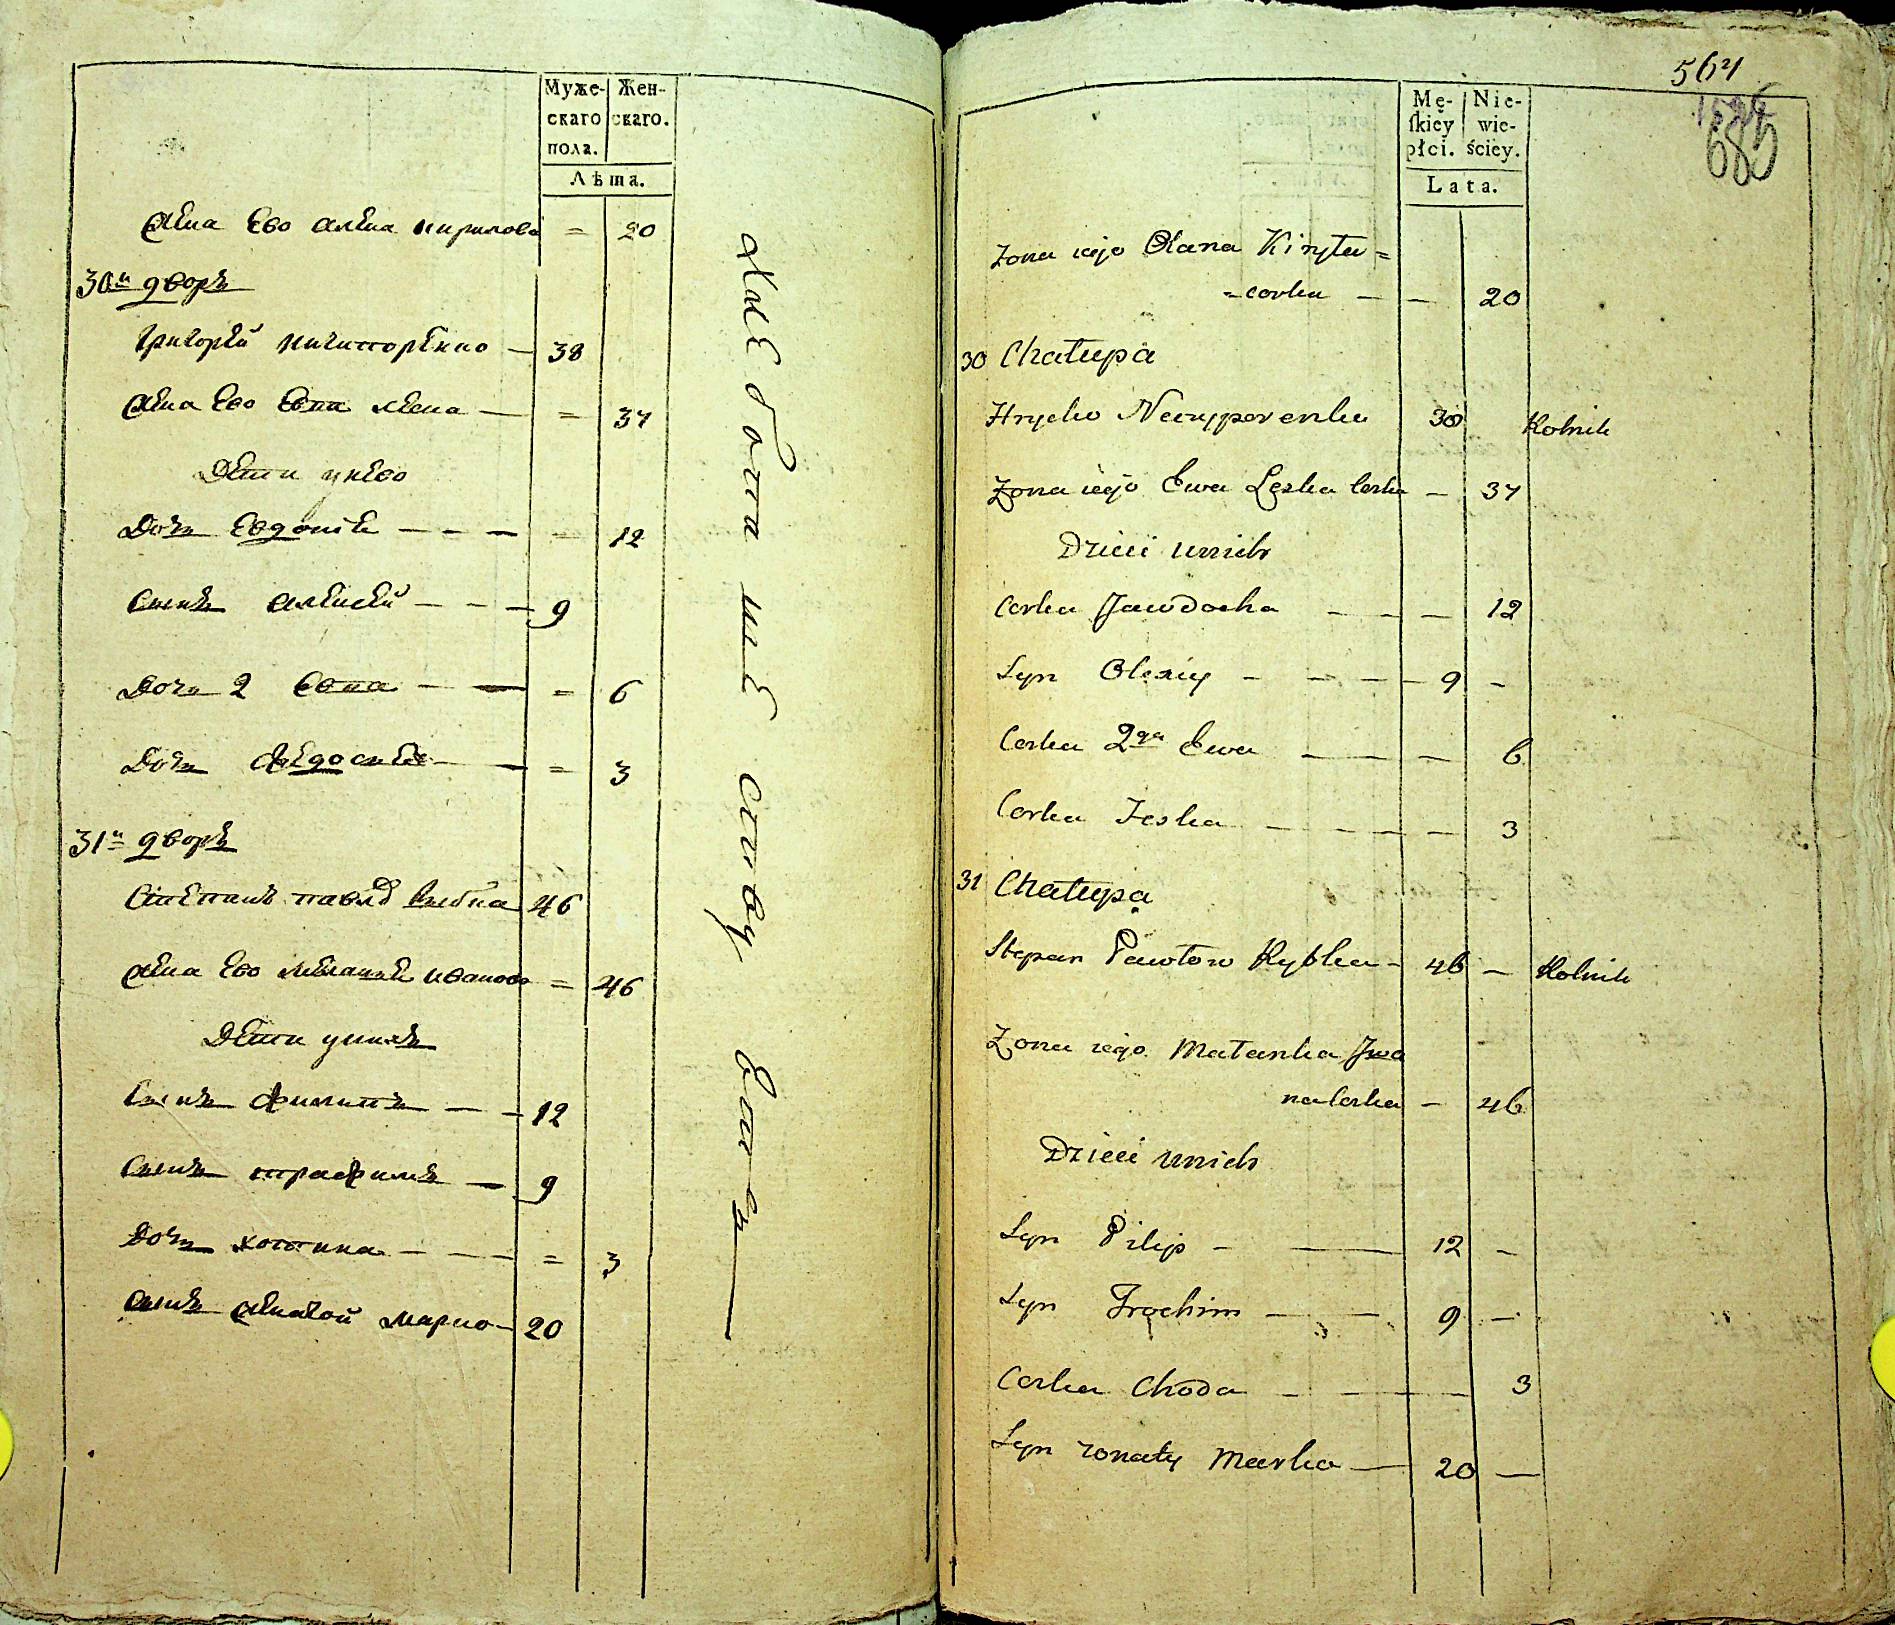 Муже-
скаго
пола.
Жен-
скаго.
Лѣта.
жена Ево алена кирилова = 20
30й дворъ
Григорей ничипорѣнко — 38
жена Ево Евпа — = 37
Дети унево
Дочь Евдокія — — — = 12
Сынъ алексей — — — 9
Дочь 2 Евпа — — = 6
Дочь федосия — — = 3
31й дворъ
Степанъ павлов рыбка 46
жена Ево меланья иванова = 46
Дети унихъ
Сынъ филипъ — — 12
Сынъ трафимъ — 9
Дочь хотина — — — = 3
Сынъ женатой марко — 20
хлебопашецъ
564
685
Mę-
ſkiey
płci.
Nie-
wie-
ściey.
Lata.
Zona iego Olana Kiryło=
=corka — — 20
30 Chałupa
Hryćko Neczyporenko 38 Rolnik
Zona iego Ewa Leska Corka — 37
Dzieci unich
Corka Jawdocha — — — 12
Syn Olexiy — — — — 9 —
Corka 2ga Ewa — — — 6
Corka Feska — — — — 3
31 Chałupa
Stepan Pawłow Rybka — 46 — Rolnik
Zona iego Małanka Iwa
na Corka — 46
Dzieci unich
Syn Pilip — — 12 —
Syn Trochim — — 9 —
Corka Choda — — — 3
Syn zonaty Marko — 20 —